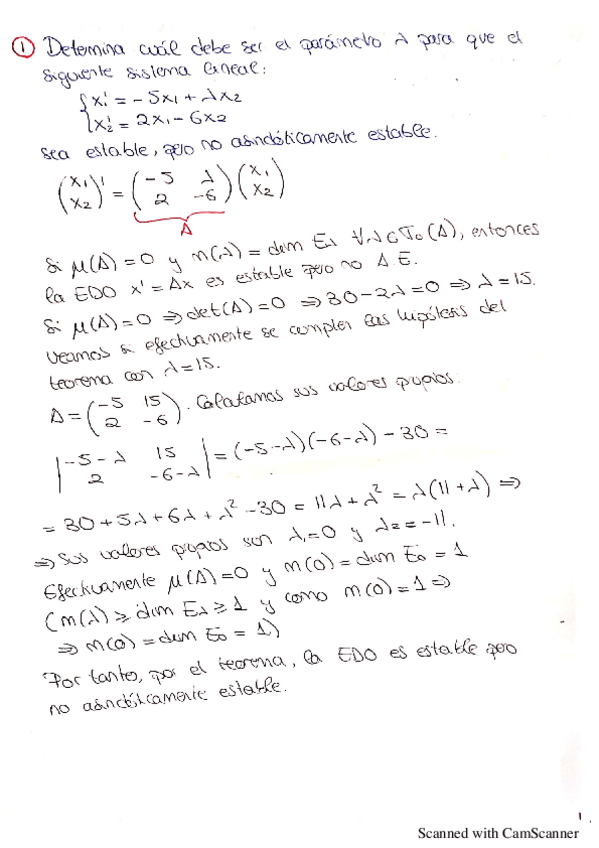 ① Determina cuál debe ser el parámetro λ para que el
siguiente sistema lineal:
{x₁' = -5x₁ + λx₂
{x₂' = 2x₁ - 6x₂
sea estable, pero no asintóticamente estable.
(x₁ x₂)' = (-5 λ; 2 -6)(x₁ x₂)
A
Si μ(A) = 0 y m(λ) = dim Eλ ∀λ∈σ₀(A), entonces
la EDO x' = Ax es estable pero no A E.
Si μ(A) = 0 ⇒ det(A) = 0 ⇒ 30 - 2λ = 0 ⇒ λ = 15.
Veamos si efectivamente se cumplen las hipótesis del
teorema con λ = 15.
A = (-5 15; 2 -6). Calculamos sus valores propios.
|-5-λ 15; 2 -6-λ| = (-5-λ)(-6-λ) - 30 =
= 30 + 5λ + 6λ + λ² - 30 = 11λ + λ² = λ(11 + λ) ⇒
⇒ Sus valores propios son λ₁ = 0 y λ₂ = -11.
Efectivamente μ(A) = 0 y m(0) = dim E₀ = 1
(m(λ) ≥ dim Eλ ≥ 1 y como m(0) = 1 ⇒
⇒ m(0) = dim E₀ = 1)
Por tanto, por el teorema, la EDO es estable pero
no asintóticamente estable.
1
Scanned with CamScanner